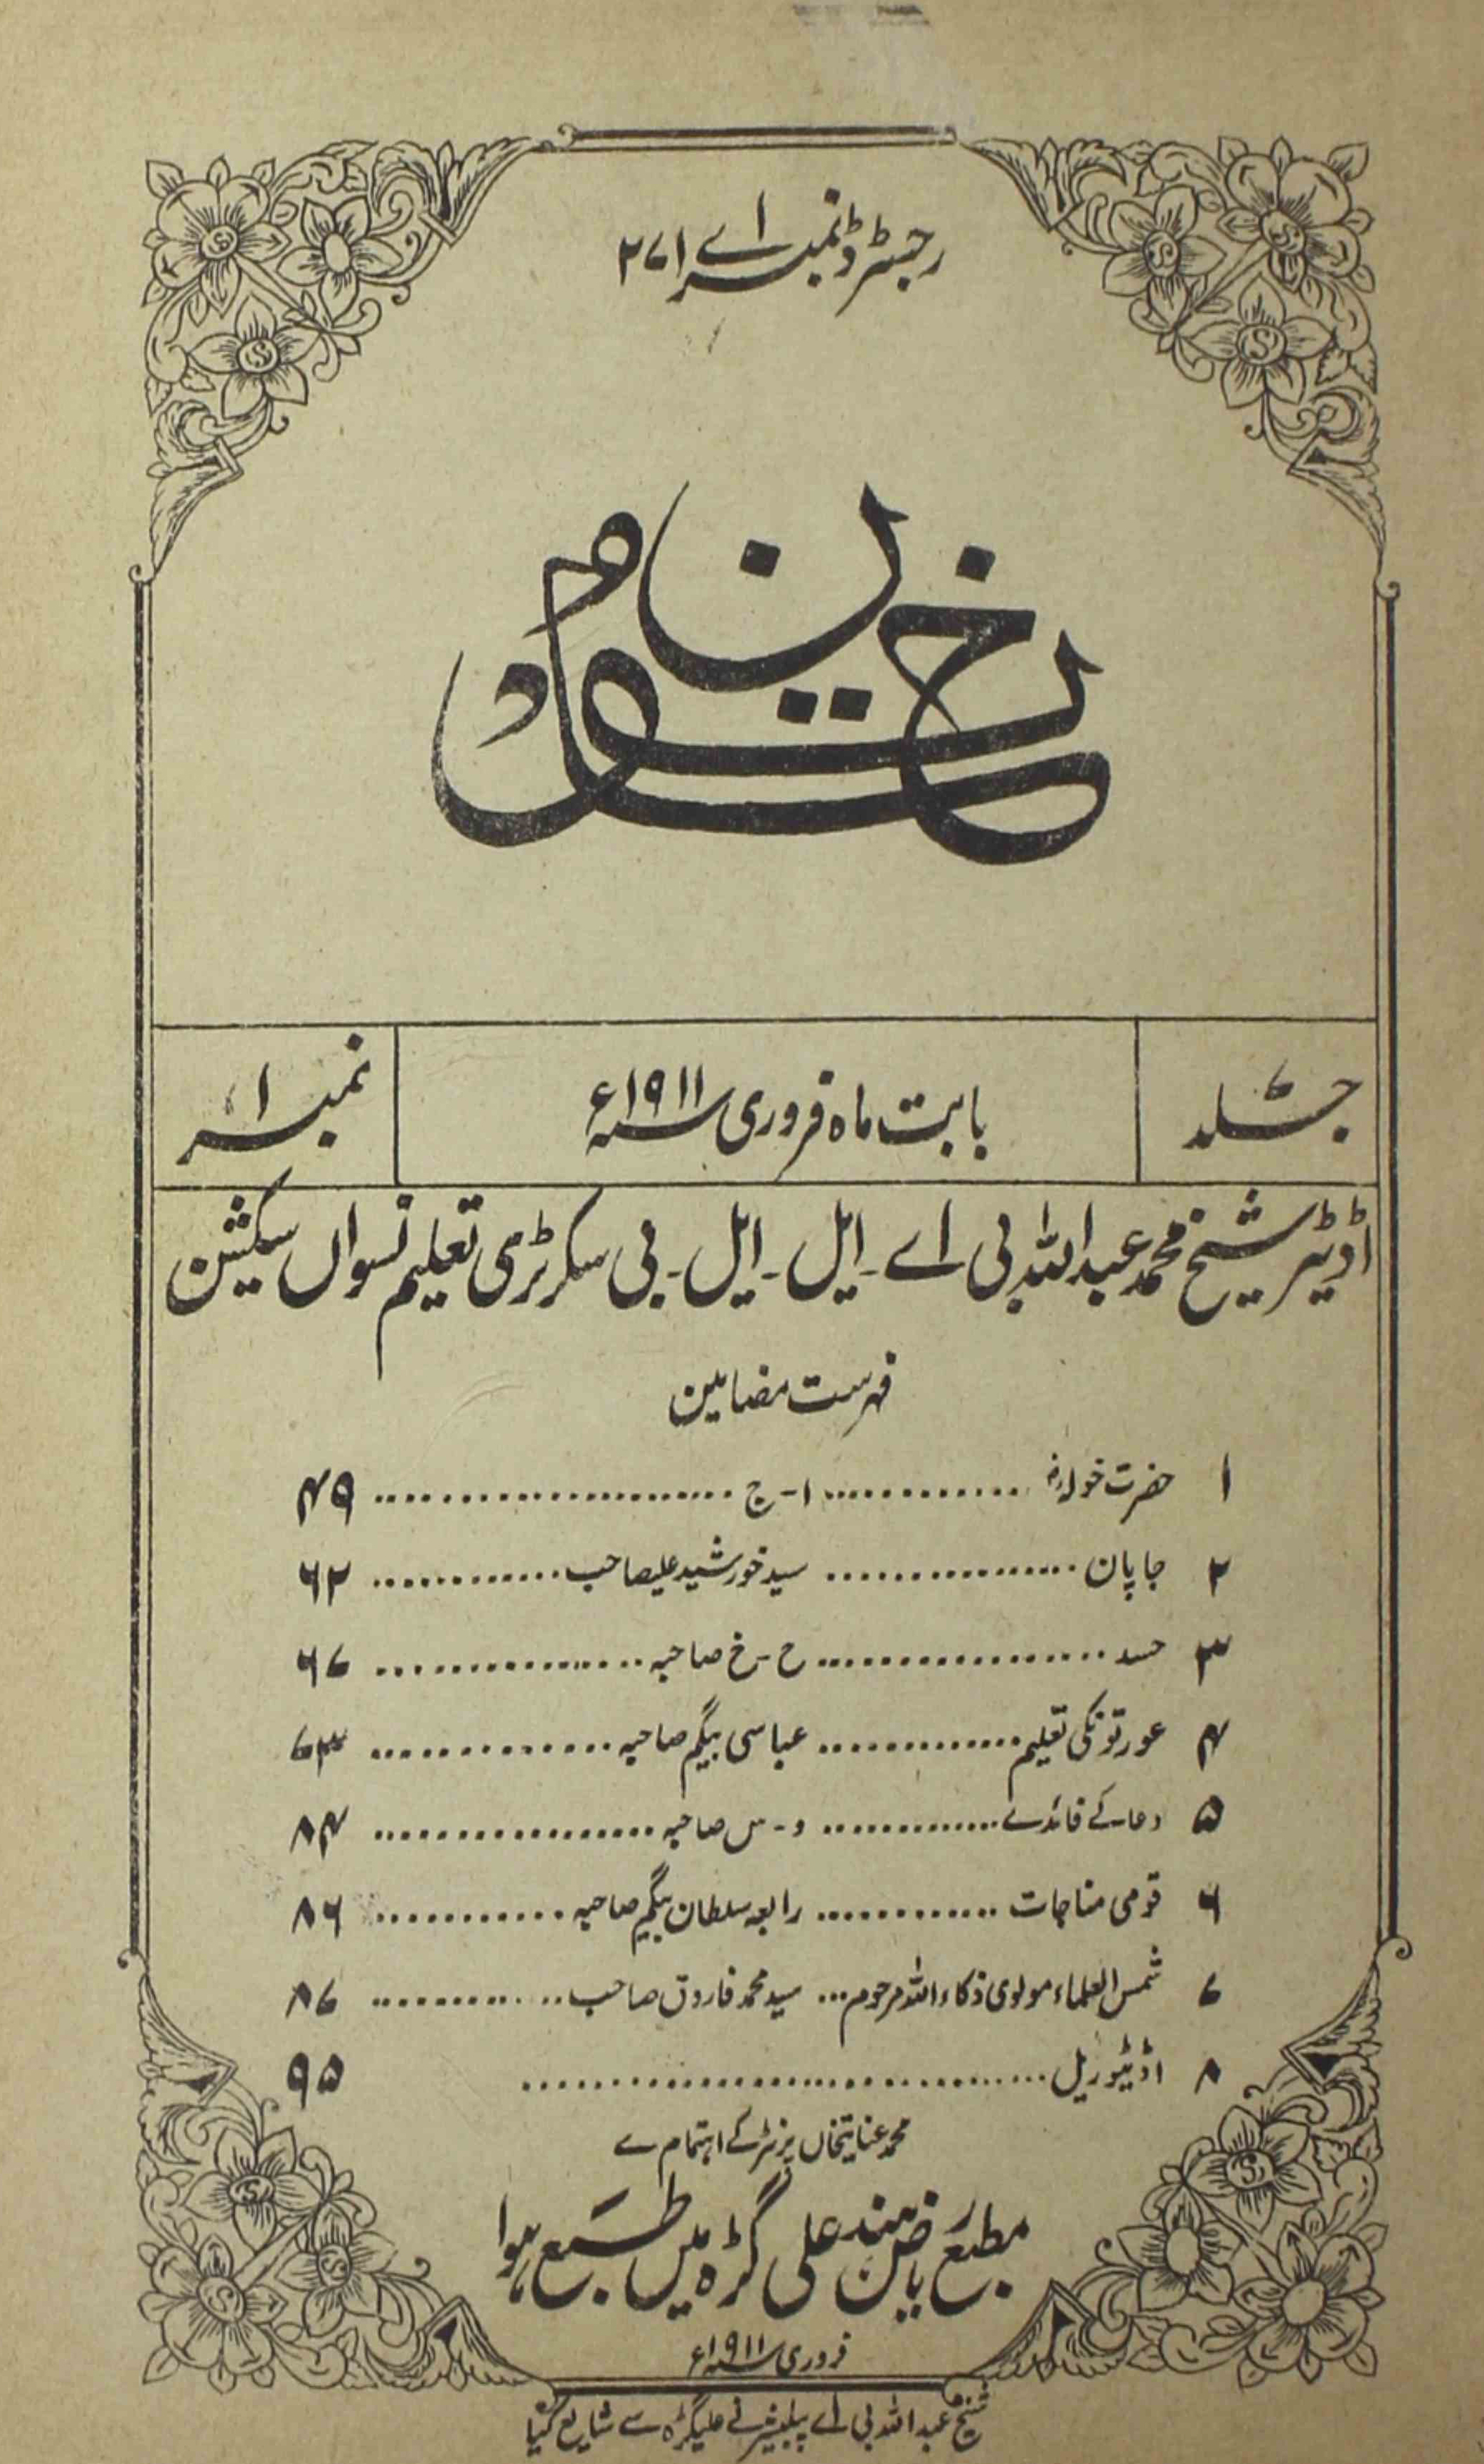 رجسٹرڈ نمبر اے ۲۷۱
خاتون
جلد ۷
بابت ماہ فروری سنہ ۱۹۱۱ء
نمبر ۱
اڈیٹر شیخ محمد عبداللہ بی اے - ایل - ایل - بی سکرٹری تعلیم نسواں سکیشن
فہرست مضامین
۱ حضرت خولہؓ ............ ا - ج ............ ۴۹
۲ جاپان ............ سید خورشید علیصاحب ............ ۶۲
۳ حسد ............ ح - خ صاحبہ ............ ۶۷
۴ عورتونکی تعلیم ............ عباسی بیگم صاحبہ ............ ۷۳
۵ دعا کے فائدے ............ و - س صاحبہ ............ ۸۴
۶ قومی مناجات ............ رابعہ سلطان بیگم صاحبہ ............ ۸۶
۷ شمس العلماء مولوی ذکاء اللہ مرحوم ... سید محمد فاروق صاحب ............ ۸۷
۸ اڈیٹوریل ............ ۹۵
محمد عنایتخاں پرنٹر کے اہتمام سے
مطبع ریاض ہند علی گڑہ میں طبع ہوا
فروری سنہ ۱۹۱۱ء
شیخ عبداللہ بی اے پبلیشر نے علیگڑہ سے شایع کیا